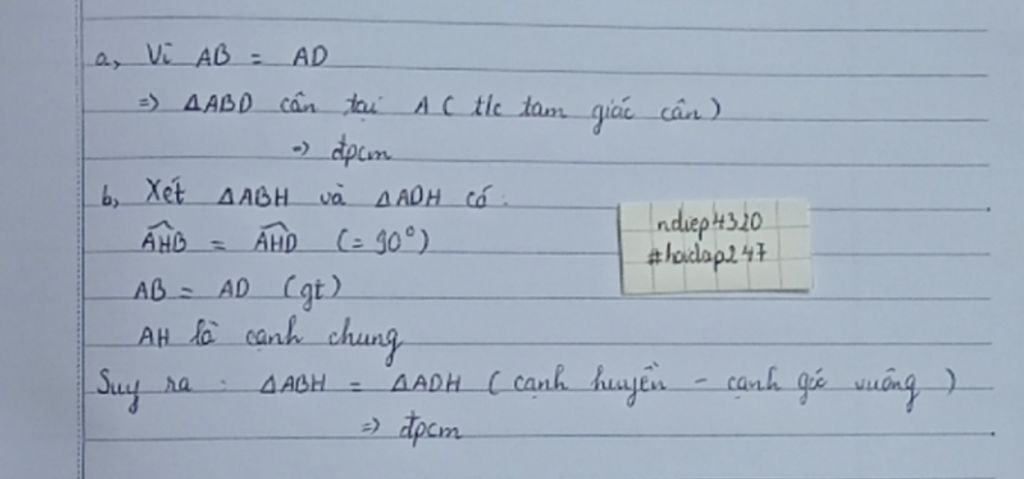 a, Vì AB = AD
=> ΔABD cân tại A ( t/c tam giác cân )
=> đpcm
b, Xét ΔABH và ΔADH có :
AHB = AHD (= 90°)
AB = AD (gt)
AH là cạnh chung
Suy ra : ΔABH = ΔADH ( cạnh huyền - cạnh góc vuông )
=> đpcm
ndiep4320
#hoidap247